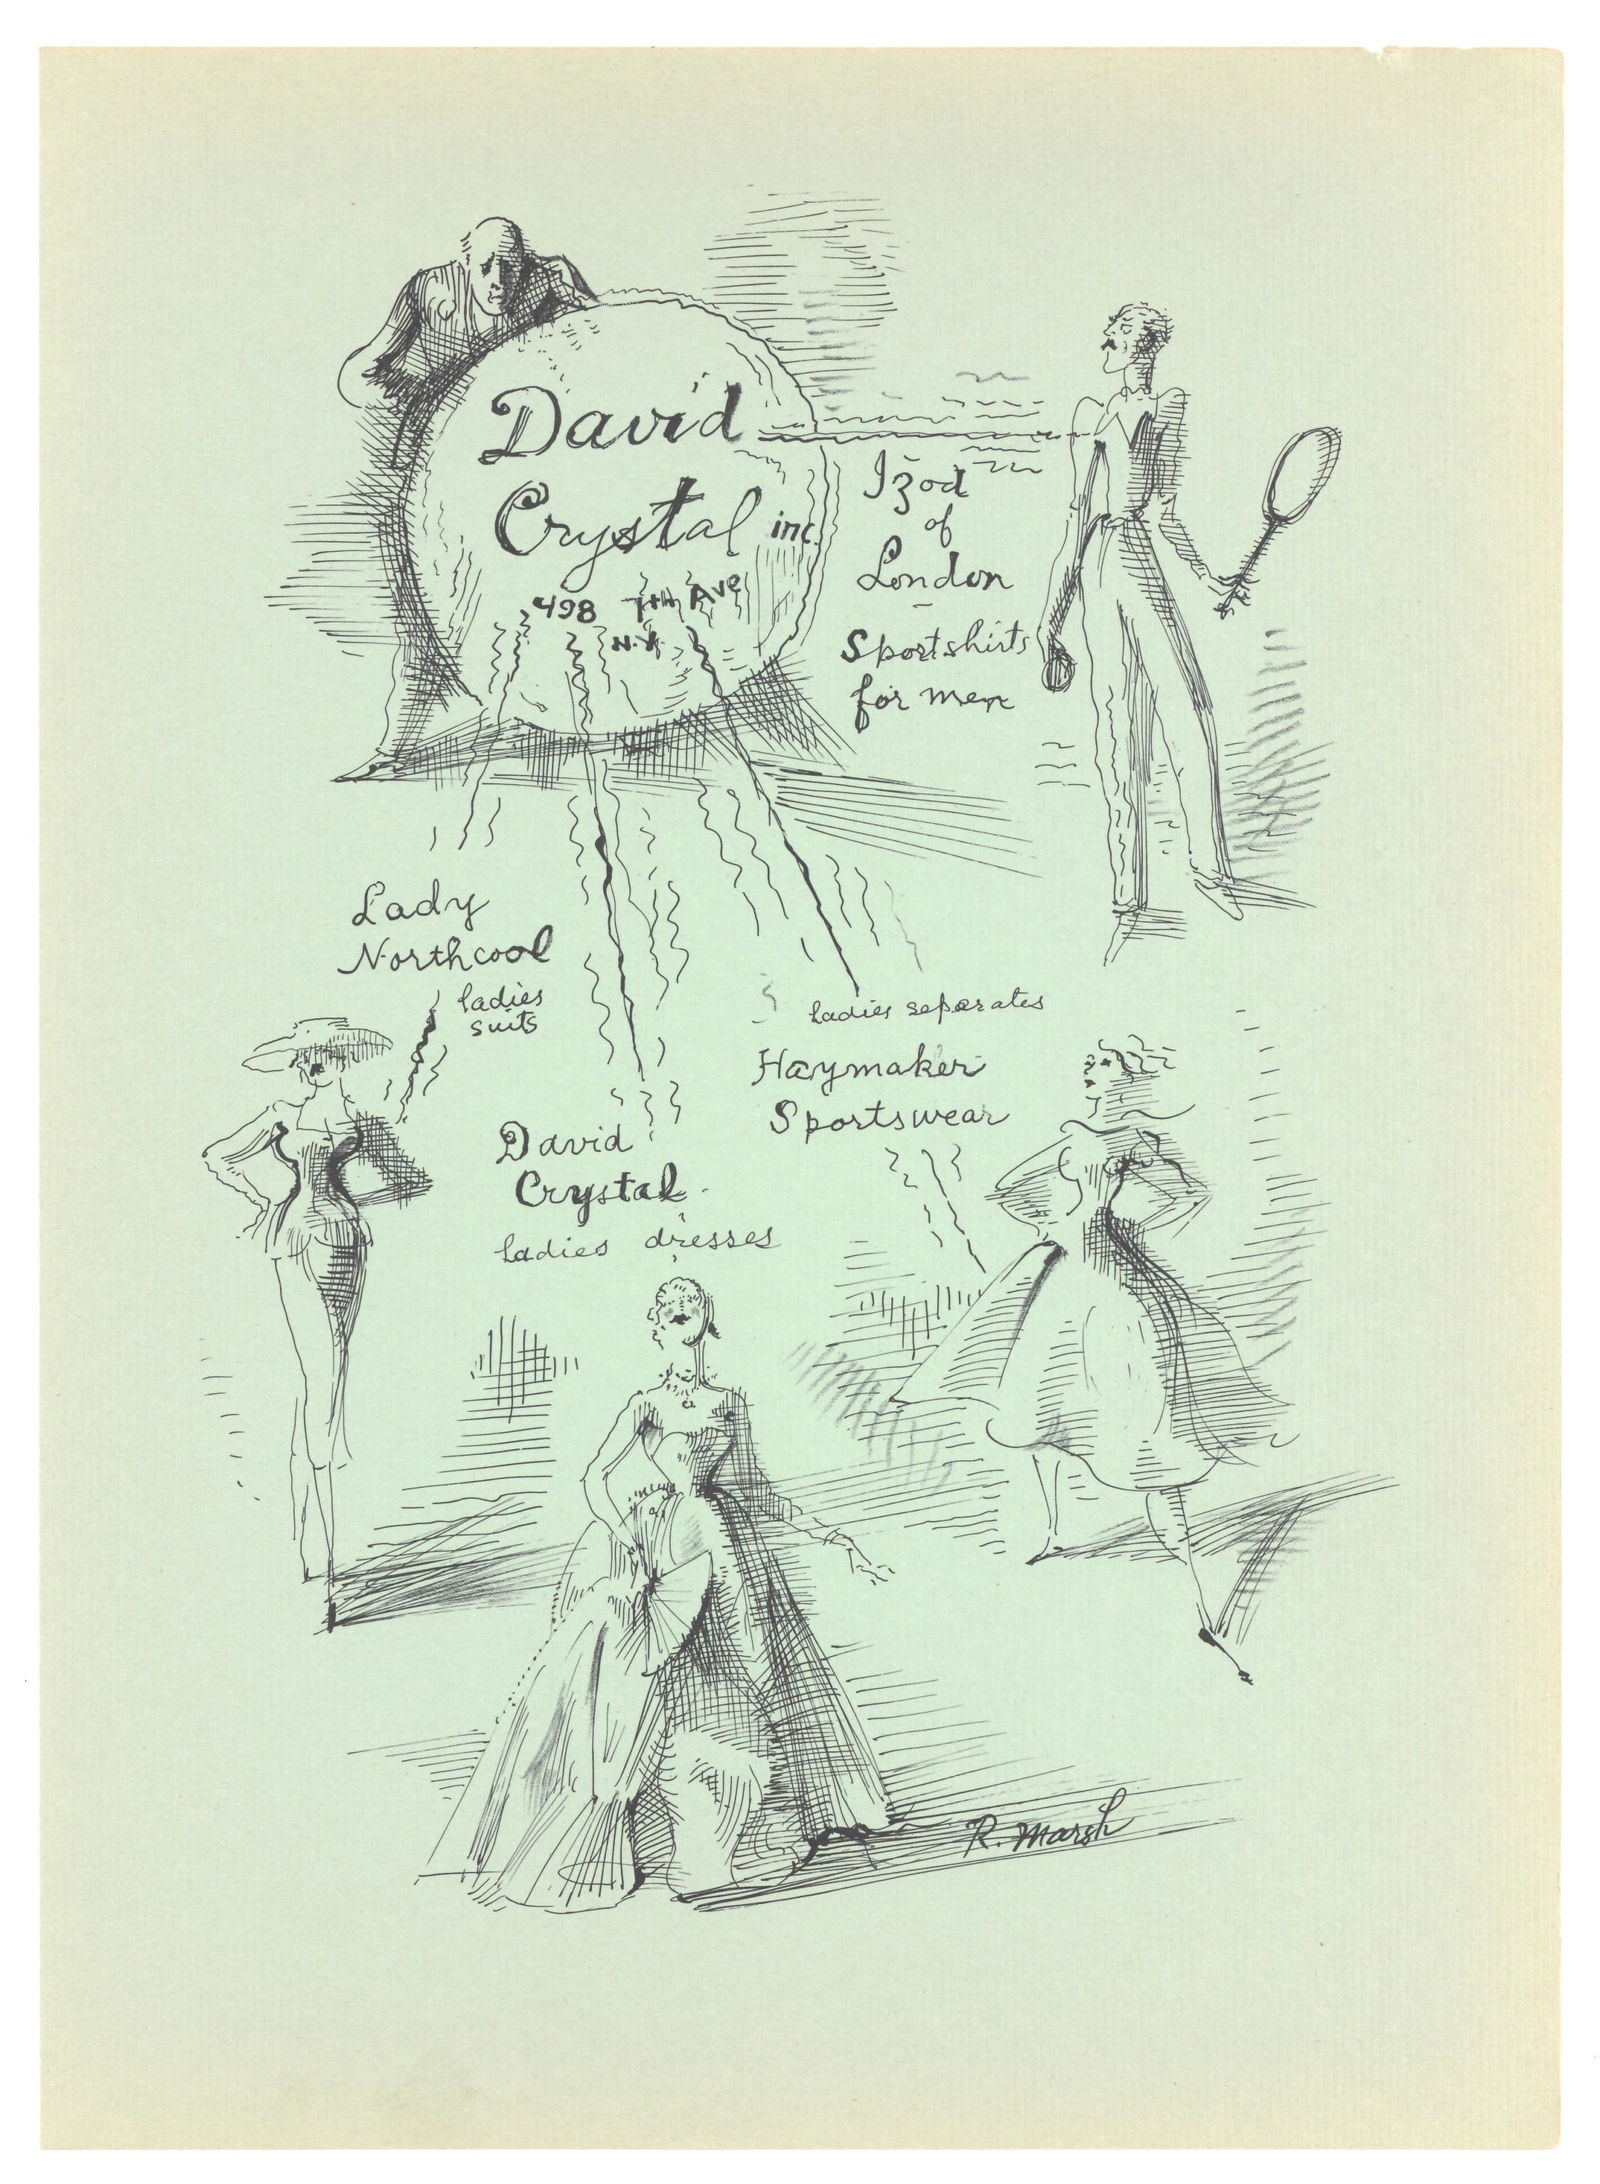 David
Crystal inc.
498 7th Ave
N.Y.
Izod
of
London
Sportshirts
for men
Lady
Northcool
ladies
suits
ladies separates
Haymaker
Sportswear
David
Crystal
ladies dresses
R. Marsh